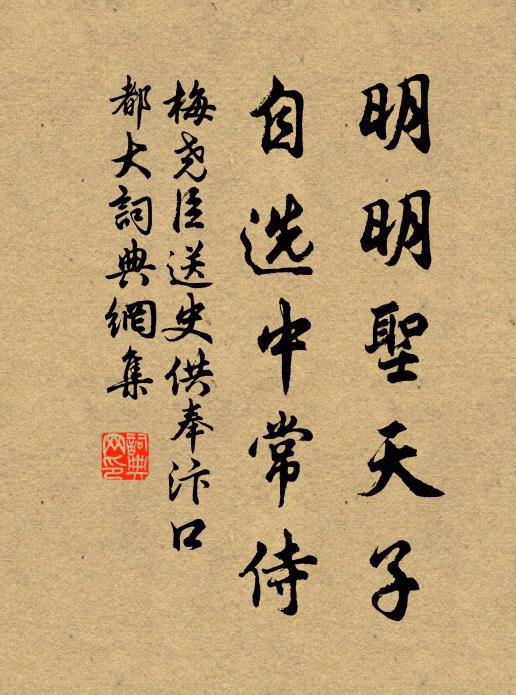 明明聖天子
自选中常侍
梅尧臣送史供奉汴口
都大詞典網集
詞典网印